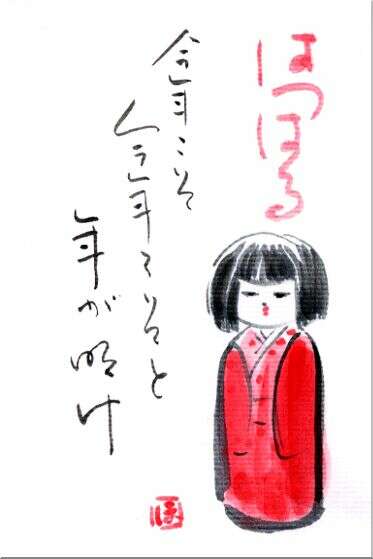 はつはる
今年こそ
今年こそと
年が明け
ほ